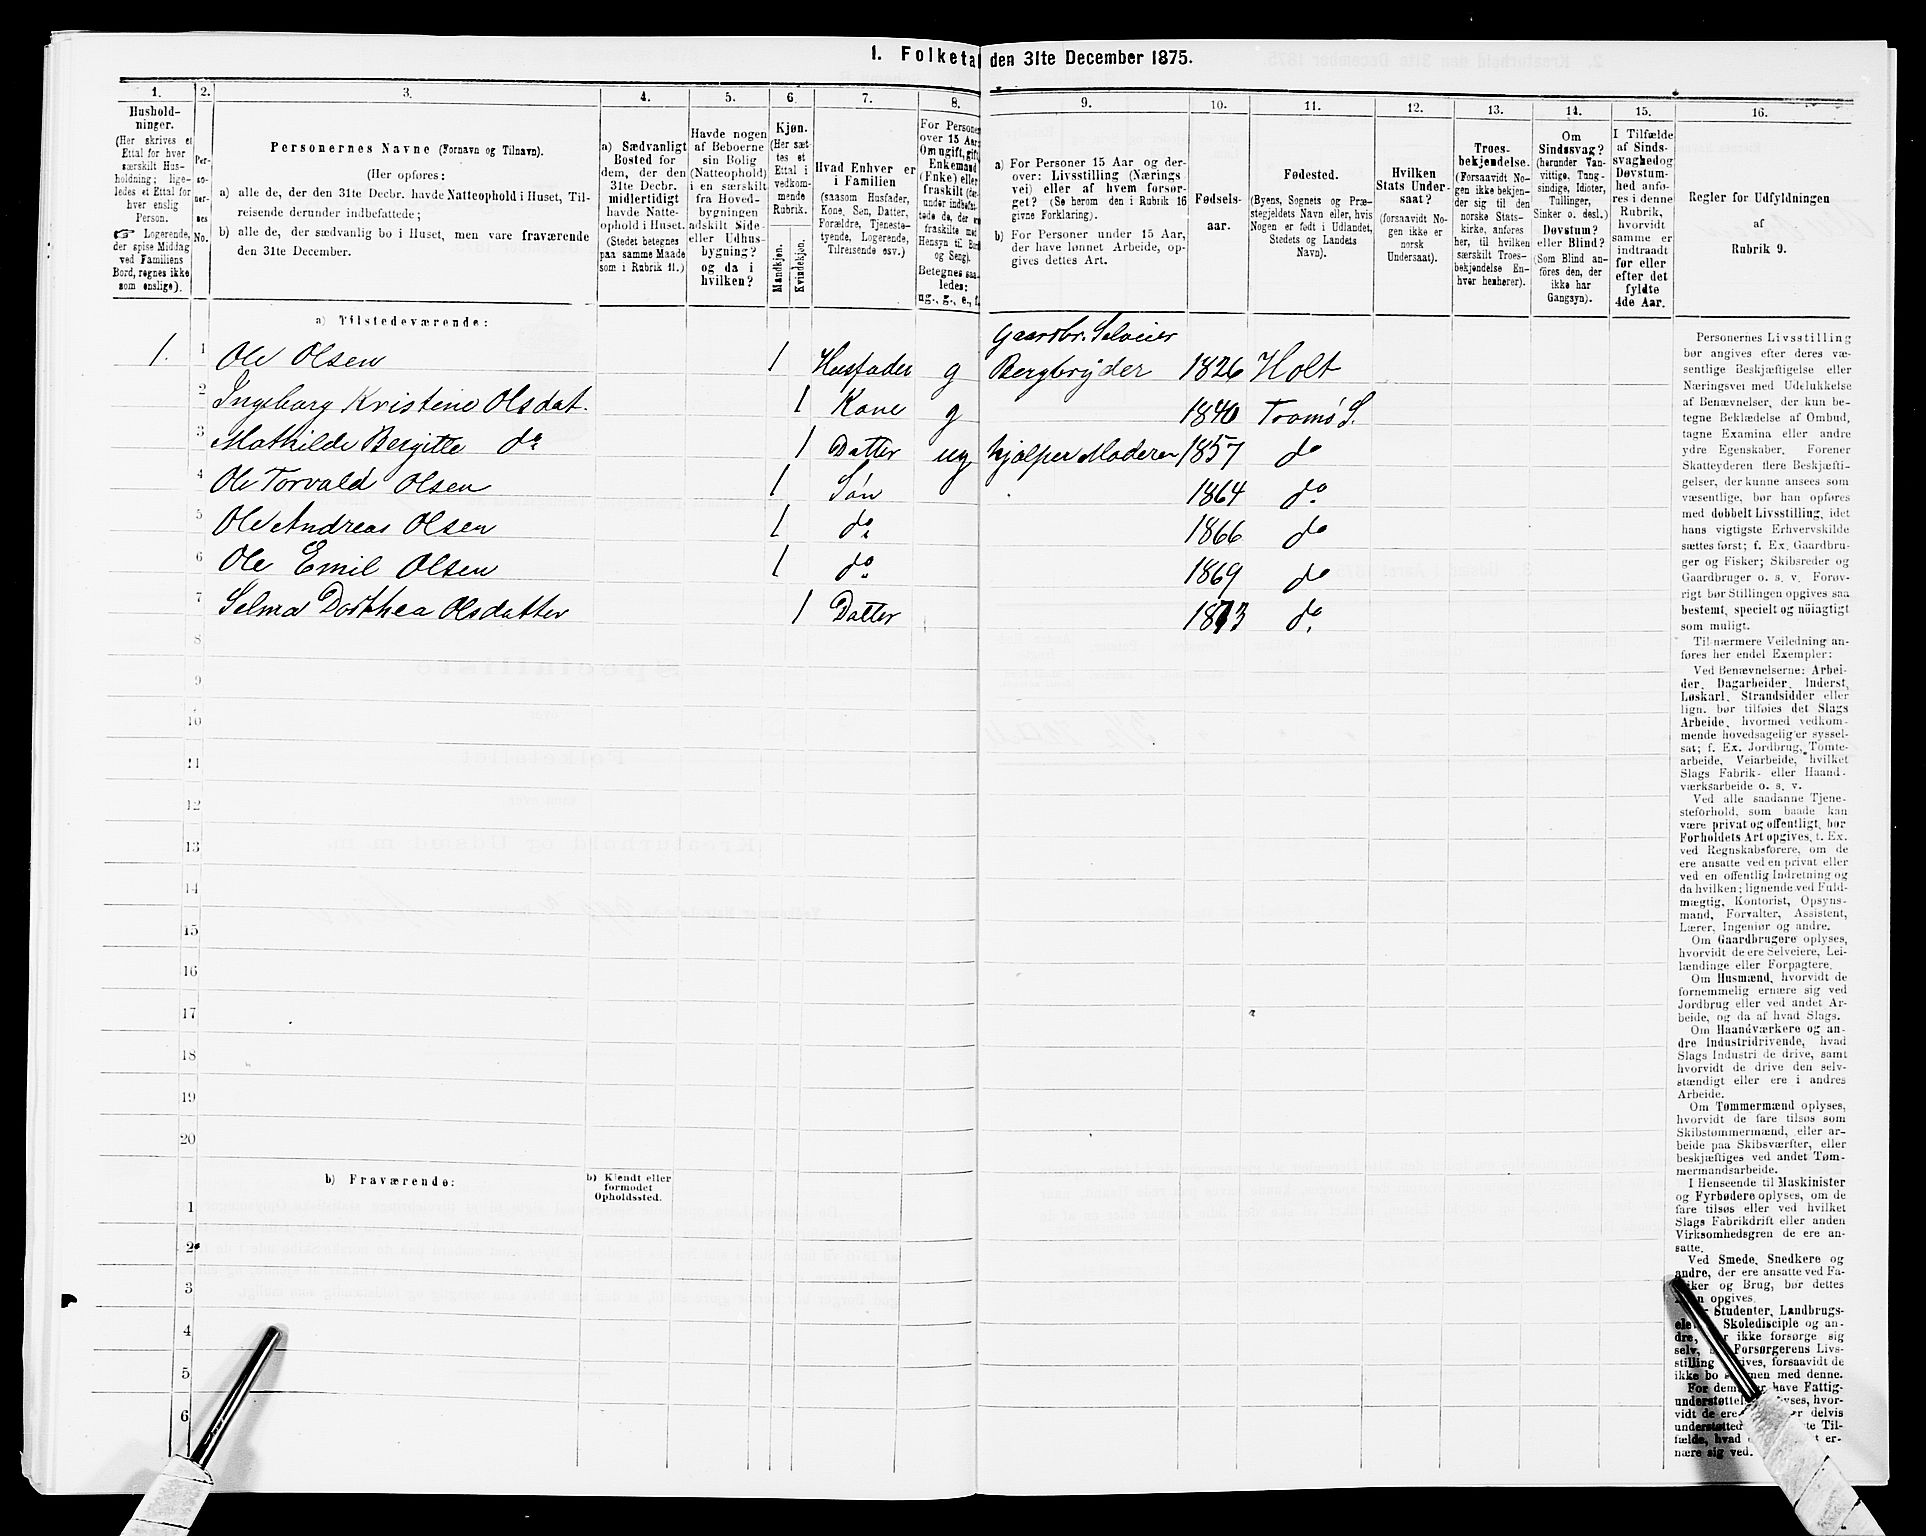 1. Folketal den 31te December 1875.
1. 2. 3. 4. 5. 6. 7. 8. 9. 10. 11. 12. 13. 14. 15. 16.
Hushold-
ninger.
(Her skrives et
Ettal for hver
særskilt Hus-
holdning; lige-
ledes et Ettal for
hver enslig
Person.
☞ Logerende,
der spise Middag
ved Familiens
Bord, regnes ikke
som enslige).
Per-
so-
ner-
nes
No.
Personernes Navne (Fornavn og Tilnavn).
(Her opføres:
a) alle de, der den 31te Decbr. havde Natteophold i Huset, Til-
reisende derunder indbefattede;
b) alle de, der sædvanlig bo i Huset, men vare fraværende
den 31te December.
a) Sædvanligt
Bosted for
dem, der den
31te Decbr.
midlertidigt
havde Natte-
ophold i Huset.
(Stedet betegnes
paa samme Maade
som i Rubrik 11.)
Havde nogen
af Beboerne
sin Bolig
(Natteophold)
i en særskilt
fra Hoved-
bygningen
adskilt Side-
eller Udhus-
bygning?
og da i
hvilken?
Kjøn.
(Her sæt-
tes et
Ettal i
vedkom-
mende
Rubrik.
Mandkjøn.
Kvindekjøn.
Hvad Enhver er
i Familien
(saasom Husfader,
Kone, Søn, Datter,
Forældre, Tjeneste-
tyende, Logerende,
Tilreisende osv.)
For Personer
over 15 Aar:
Om ugift, gift,
Enkemand
(Enke) eller
fraskilt (der-
under indbefat-
tede de, der ere
fraskilte med
Hensyn til Bord
og Seng).
Betegnes saa-
ledes:
ug., g., e., f.
a) For Personer 15 Aar og der-
over: Livsstilling (Nærings-
vei) eller af hvem forsør-
get? (Se herom den i Rubrik 16
givne Forklaring).
b) For Personer under 15 Aar,
der have lønnet Arbeide, op-
gives dettes Art.
Fødsels-
aar.
Fødested.
(Byens, Sognets og Præ-
stegjeldets Navn eller, hvis
Nogen er født i Udlandet,
Stedets og Landets
Navn).
Hvilken
Stats Under-
saat?
(forsaavidt No-
gen ikke er
norsk
Undersaat).
Troes-
bekjendelse.
(Forsaavidt No-
gen ikke bekjen-
der sig til den
norske Stats-
kirke, anføres
her, til hvilken
særskilt Troes-
bekjendelse En-
hver henhører).
Om
Sindssvag?
(herunder Van-
vittige, Tung-
sindige, Idioter,
Tullinger,
Sinker o. desl.)
Døvstum?
eller Blind?
(Som Blind an-
føres den, der
ikke har
Gangsyn).
I Tilfælde
af Sinds-
svaghed og
Døvstum-
hed anfø-
res i denne
Rubrik,
hvorvidt
samme er
indtraadt
før eller
efter det
fyldte
4de Aar.
Regler for Udfyldningen
af
Rubrik 9.
a) Tilstedeværende:
Gaardbr. Selveier
1. 1 Ole Olsen 1 Husfader g Bergbryder 1826 Holt
2 Ingeborg Kristine Olsdat. 1 Kone g 1840 Tromø S.
3 Mathilde Bergitte do 1 Datter ug hjælper Moderen 1857 do
4 Ole Torvald Olsen 1 Søn 1864 do
5 Ole Andreas Olsen 1 do 1866 do
6 Ole Emil Olsen 1 do 1869 do
7 Selma Dorthea Olsdatter 1 Datter 1873 do
8
9
10
11
12
13
14
15
16
17
18
19
20
b) Fraværende:
b) Kjendt eller
formodet
Opholdssted.
1
2
3
4
5
6
Personernes Livsstilling
bør angives efter deres væ-
sentlige Beskjæftigelse eller
Næringsvei med Udelukkelse
af Benævnelser, der kun be-
tegne Beklædelse af Ombud,
tagne Examina eller andre
ydre Egenskaber. Forener
Skatteyderen flere Beskjæfti-
gelser, der kunne ansees som
væsentlige, bør han opføres
med dobbelt Livsstilling, idet
hans vigtigste Erhvervskilde
sættes først; f. Ex. Gaardbru-
ger og Fisker; Skibsreder og
Gaardbruger o. s. v. Forøv-
rigt bør Stillingen opgives saa
bestemt, specielt og nøiagtigt
som muligt.
Til nærmere Veiledning an-
føres her endel Exempler:
Ved Benævnelserne: Arbei-
der, Dagarbeider, Inderst,
Løskarl, Strandsidder eller
lign. bør tilføies det Slags
Arbeide, hvormed vedkom-
mende hovedsagelig er syssel-
sat; f. Ex. Jordbrug, Tomte-
arbeide, Veiarbeide, hvilket
Slags Fabrik- eller Haand-
værksarbeide o. s. v.
Ved alle saadanne Tjene-
steforhold, som baade kan
være privat og offentligt, bør
Forholdets Art opgives, t. Ex.
ved Regnskabsførere, om de
ere ansatte ved en privat eller
ved en offentlig Indretning og
da hvilken; lignende ved Fuld-
mægtig, Kontorist, Opsyns-
mand, Forvalter, Assistent,
Lærer, Ingeniør og andre.
Om Gaardbrugere oplyses,
hvorvidt de ere Selveiere, Lei-
lændinge eller Forpagtere.
Om Husmænd, hvorvidt de
fornemmelig ernære sig ved
Jordbrug eller ved andet Ar-
beide, og da af hvad Slags.
Om Haandværkere og an-
dre Industridrivende, hvad
Slags Industri de drive, samt
hvorvidt de drive den selv-
stændigt eller ere i andres
Arbeide.
Om Tømmermænd oplyses,
hvorvidt de fare tilsøs som
Skibstømmermænd, eller ar-
beide paa Skibsværfter, eller
beskjæftiges ved andet Tøm-
mermandsarbeide.
I Henseende til Maskinister
og Fyrbødere oplyses, om de
fare tilsøs eller ved hvilket
Slags Fabrikdrift eller anden
Virksomhedsgren de ere an-
satte.
Ved Smede, Snedkere og
andre, der ere ansatte ved Fa-
briker og Brug, bør dettes
opgives.
Studenter, Landbrugs-
Skoledisciple og an-
dre, ikke forsørge sig
selv, Forsørgerens Livs-
stilling forsaavidt de
ikke bo men med denne.
For have Fattig-
hvor-
vidt de ere delvis
Til-
fælde, hvad er-
nære sig ved.